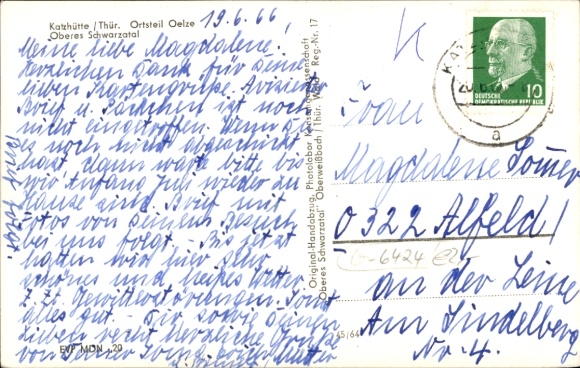 Katzhütte / Thür. Ortsteil Oelze
Oberes Schwarzatal
19.6.66,
Meine liebe Magdalene!
Herzlichen Dank für deine
lieben Kartengrüße. Avisierter
Brief u. Päckchen ist noch
nicht eingetroffen. Wenn du
es noch nicht abgeschickt
hast, dann warte bitte bis
wir Anfang Juli wieder zu
Hause sind. Brief mit
Fotos von seinem Besuch
bei uns folgt. - Bis jetzt
hatten wir hier sehr
schönes und heißes Wetter
z. Z. Gewitterstörungen. Sonst
alles gut. - Dir sowie deinen
Lieben recht herzliche Grüße
von Deiner
Mutter
EVP MDN -,20
45/64
Original-Handabzug, Photolabor
Oberes Schwarzatal" Oberweißbach / Thür. Wald Reg.-Nr. 17
10
DEUTSCHE
DEMOKRATISCHE REPUBLIK
a
Frau
Magdalene
0322 Alfeld /
6424
an der Leine
Am Lindelberg
Nr. 4.